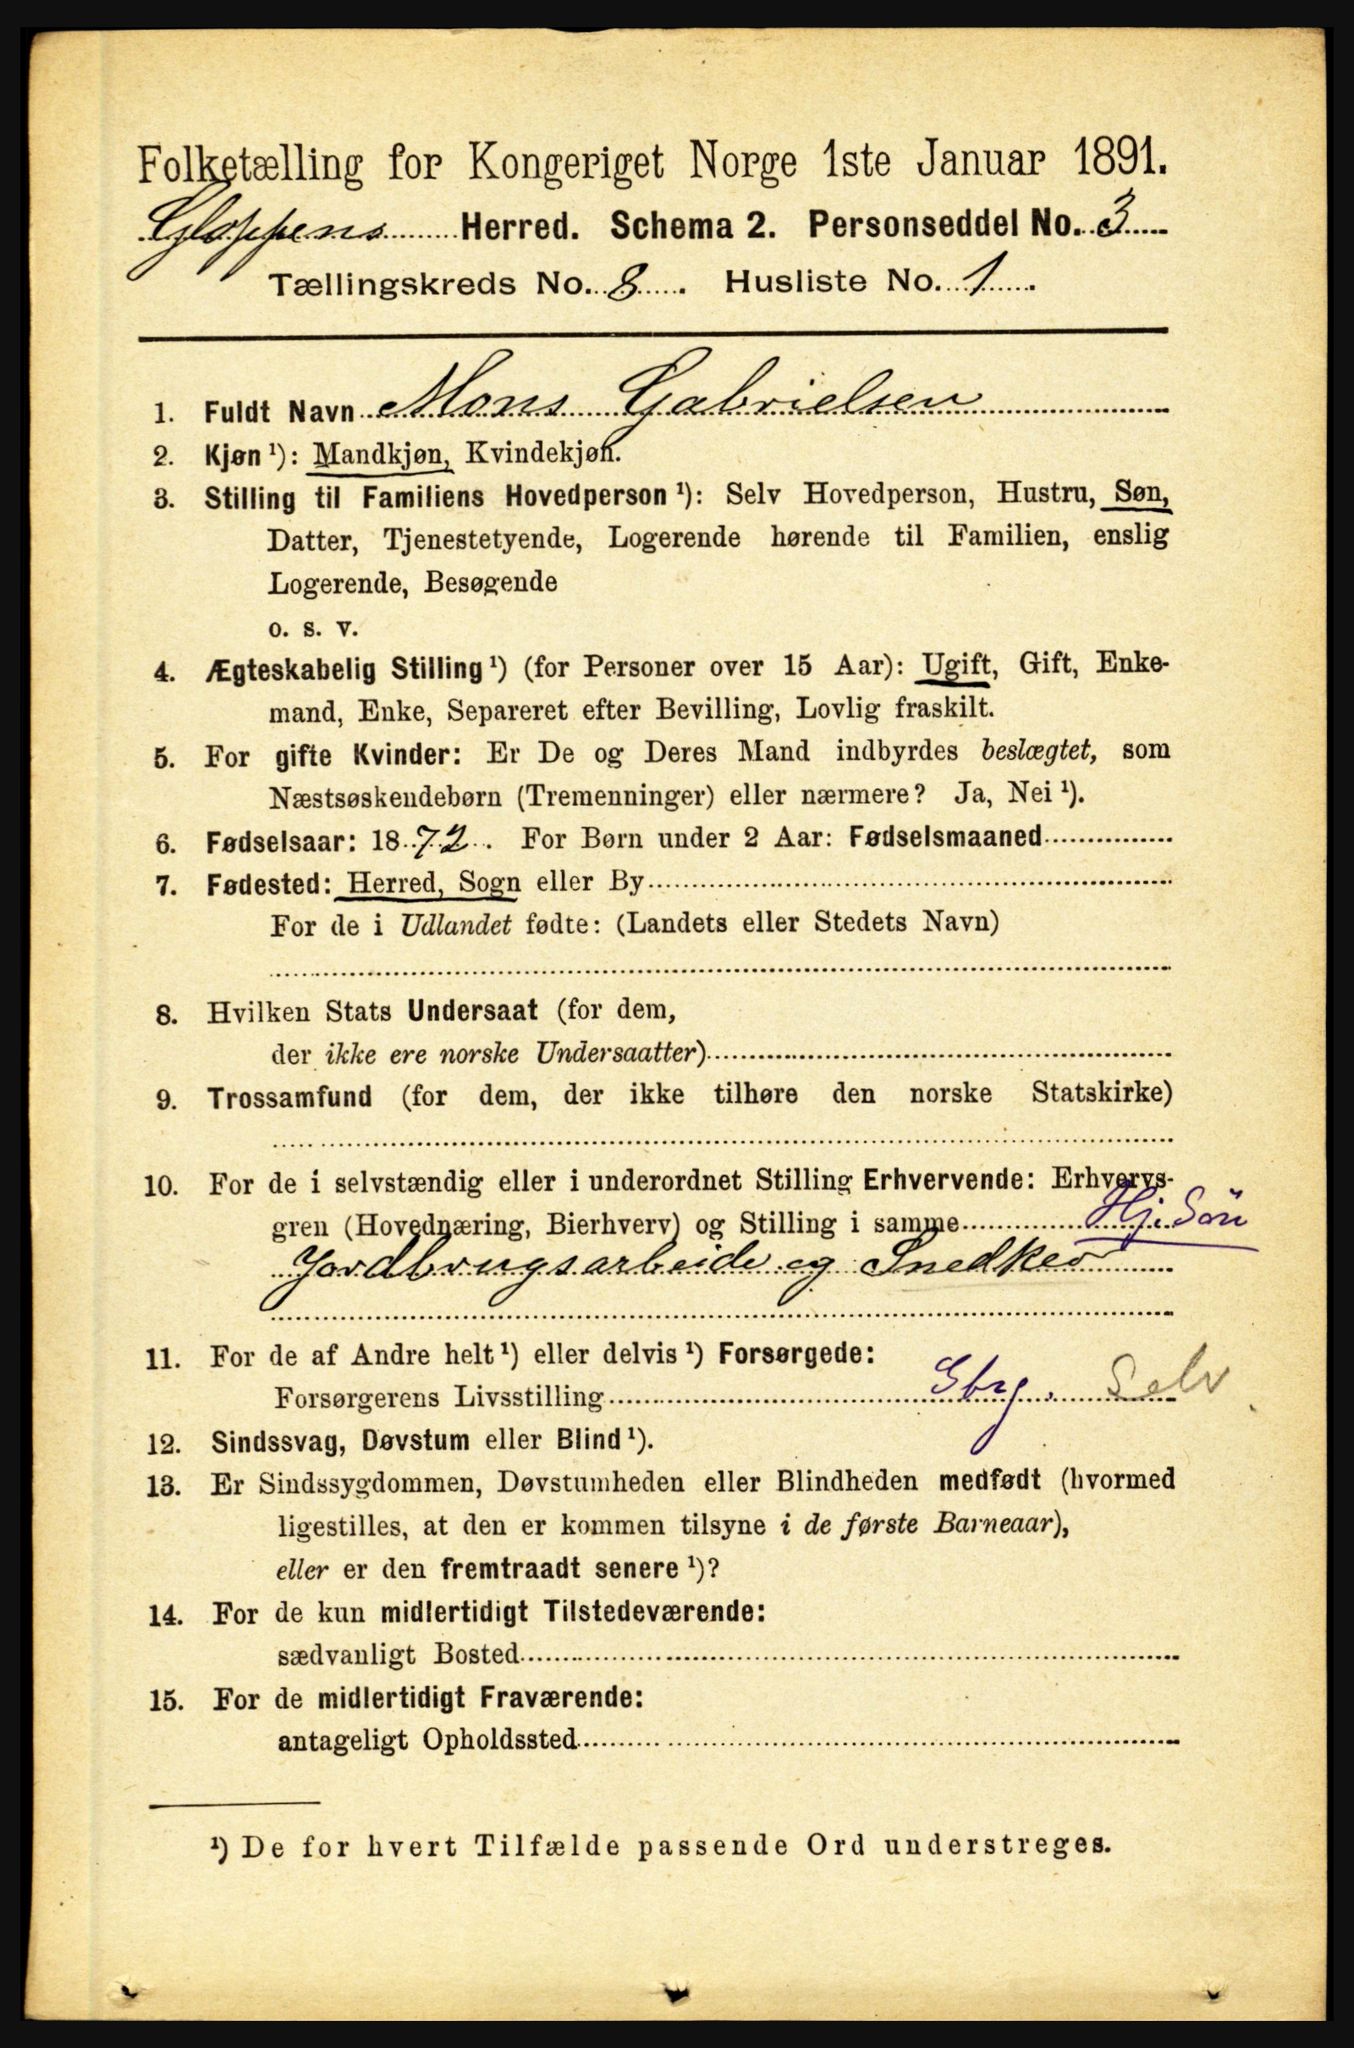 Folketælling for Kongeriget Norge 1ste Januar 1891.
Gloppens Herred. Schema 2. Personseddel No. 3
Tællingskreds No. 8. Husliste No. 1.
1. Fuldt Navn Mons Gabrielsen
2. Kjøn ¹): Mandkjøn, Kvindekjøn.
3. Stilling til Familiens Hovedperson ¹): Selv Hovedperson, Hustru, Søn,
Datter, Tjenestetyende, Logerende hørende til Familien, enslig
Logerende, Besøgende
o. s. v.
4. Ægteskabelig Stilling ¹) (for Personer over 15 Aar): Ugift, Gift, Enke-
mand, Enke, Separeret efter Bevilling, Lovlig fraskilt.
5. For gifte Kvinder: Er De og Deres Mand indbyrdes beslægtet, som
Næstsøskendebørn (Tremenninger) eller nærmere? Ja, Nei ¹).
6. Fødselsaar: 1872. For Børn under 2 Aar: Fødselsmaaned
7. Fødested: Herred, Sogn eller By
For de i Udlandet fødte: (Landets eller Stedets Navn)
8. Hvilken Stats Undersaat (for dem,
der ikke ere norske Undersaatter)
9. Trossamfund (for dem, der ikke tilhøre den norske Statskirke)
10. For de i selvstændig eller i underordnet Stilling Erhvervende: Erhvervs-
gren (Hovednæring, Bierhverv) og Stilling i samme Hj. Søn
Jordbrugsarbeide og Snedker
11. For de af Andre helt ¹) eller delvis ¹) Forsørgede:
Forsørgerens Livsstilling Gbrg. Selv
12. Sindssvag, Døvstum eller Blind ¹).
13. Er Sindssygdommen, Døvstumheden eller Blindheden medfødt (hvormed
ligestilles, at den er kommen tilsyne i de første Barneaar),
eller er den fremtraadt senere ¹)?
14. For de kun midlertidigt Tilstedeværende:
sædvanligt Bosted
15. For de midlertidigt Fraværende:
antageligt Opholdssted
¹) De for hvert Tilfælde passende Ord understreges.